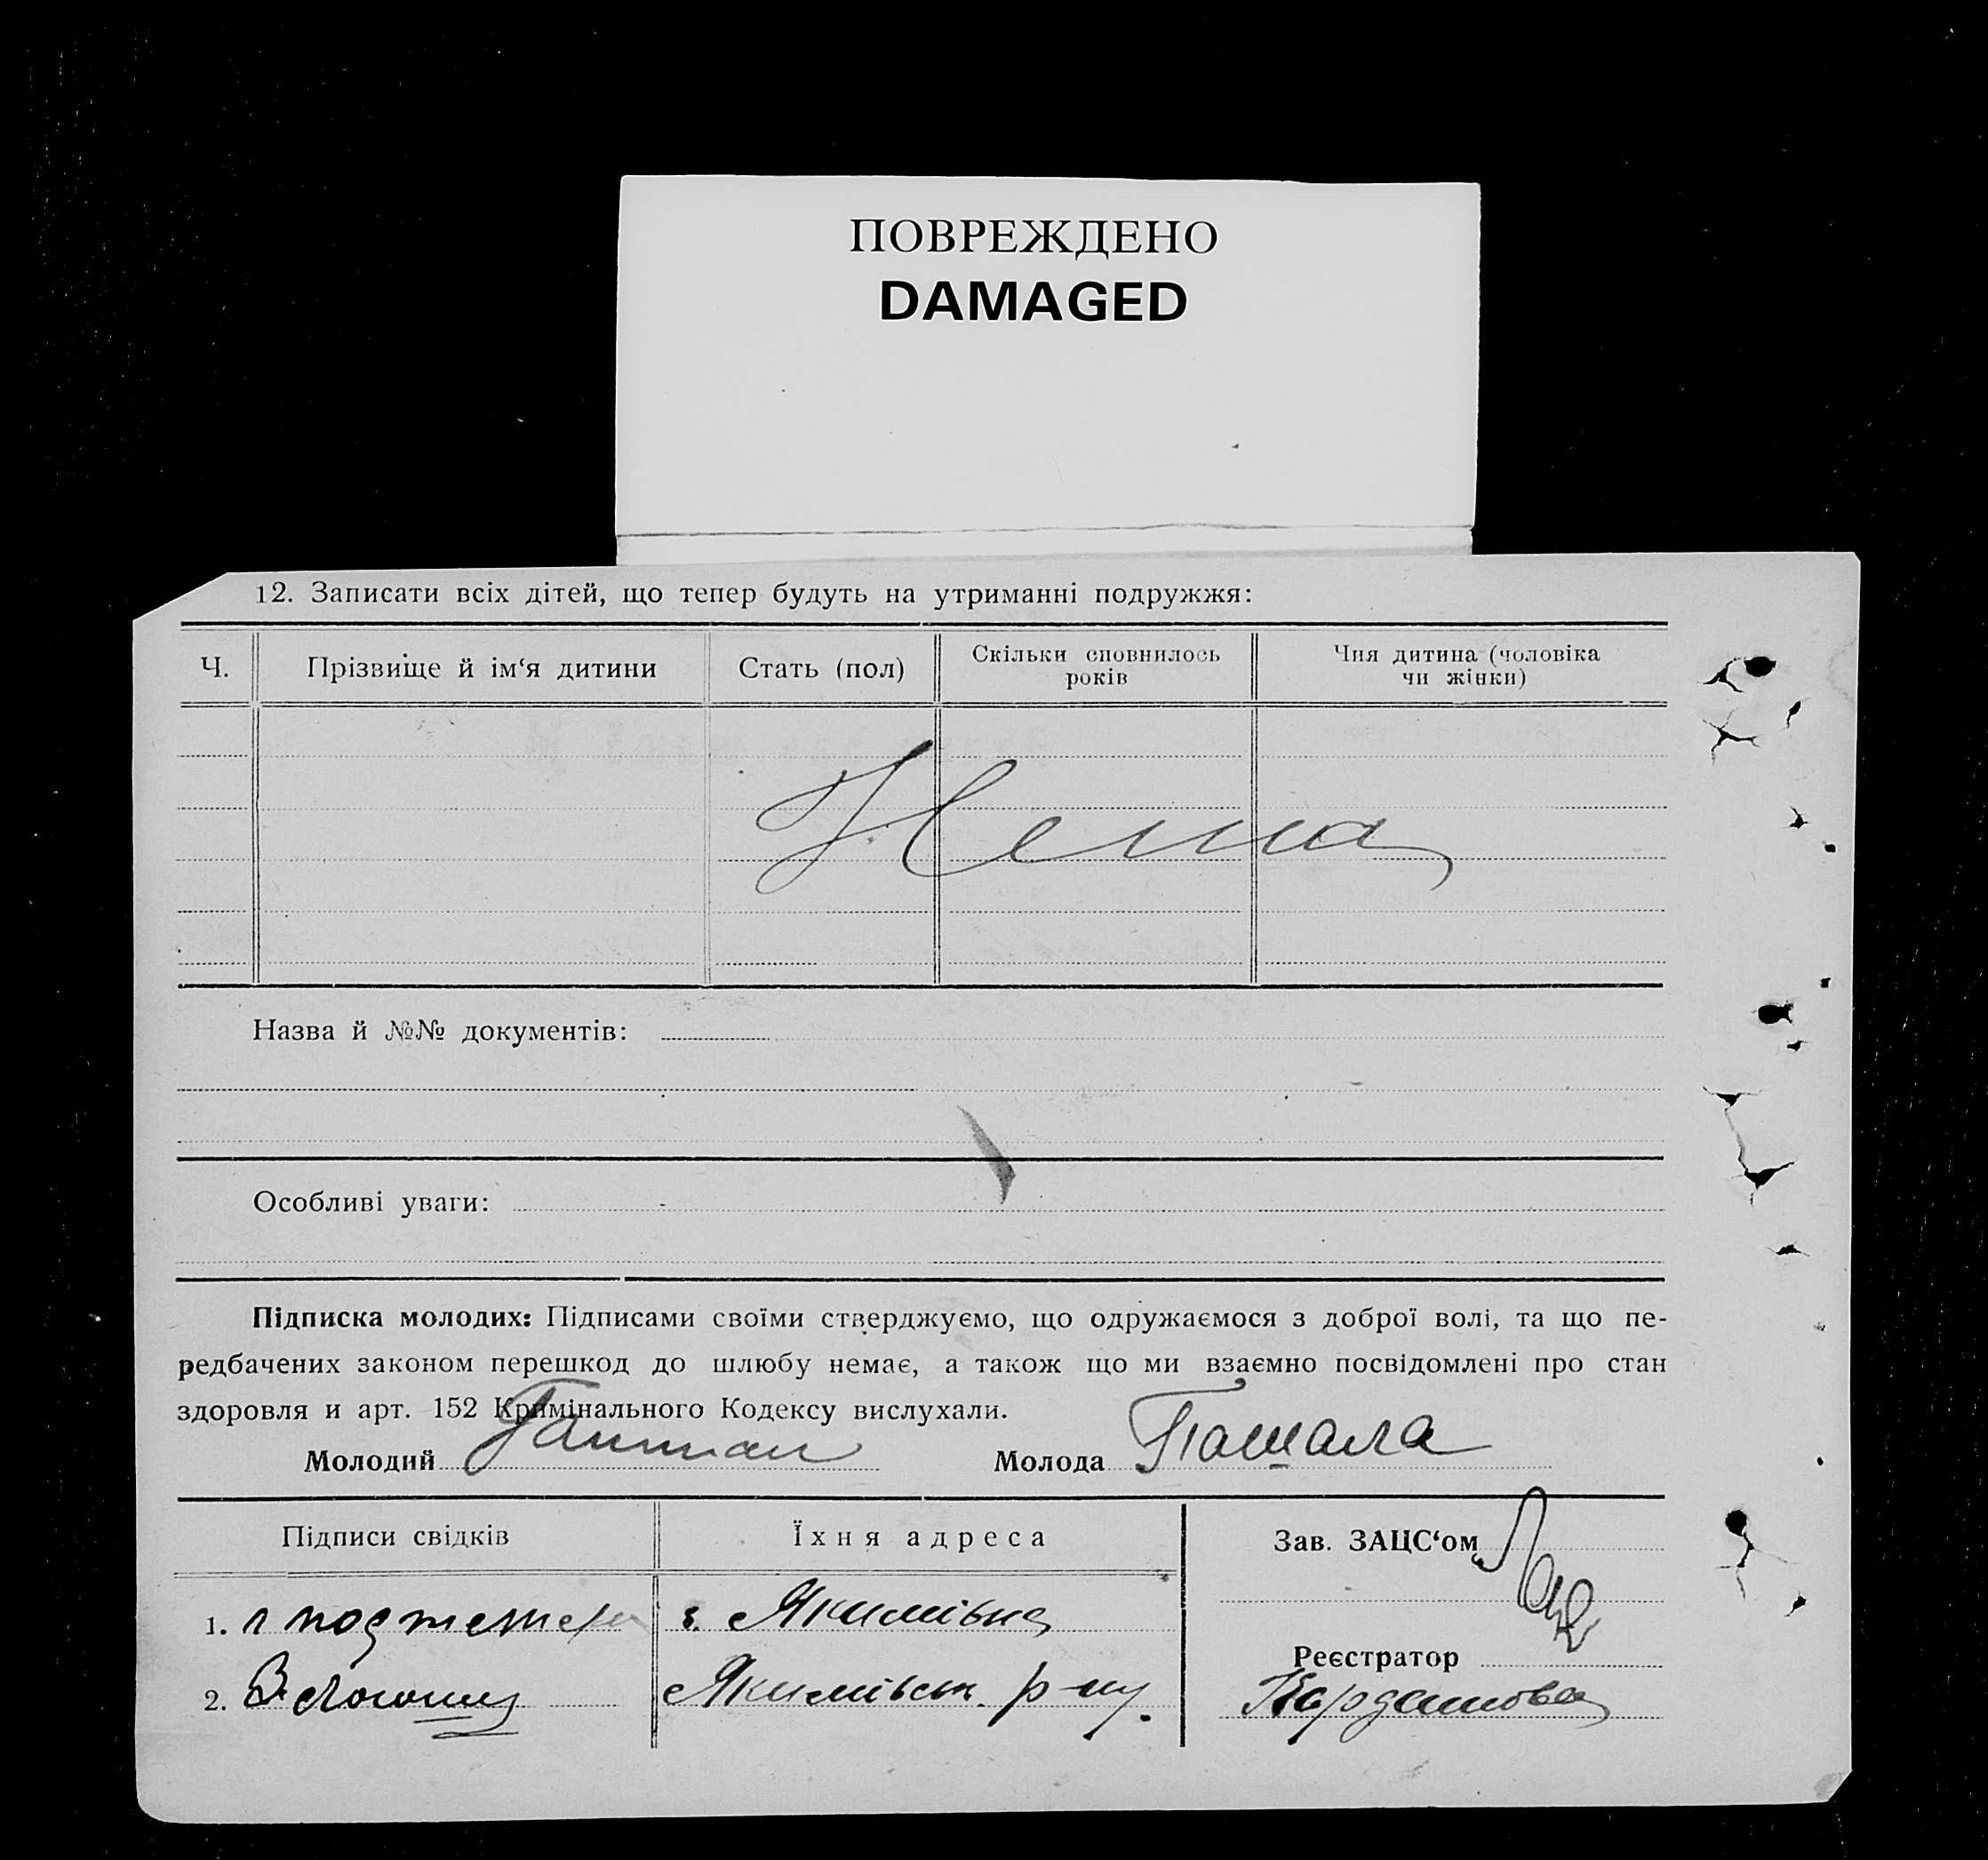 ПОВРЕЖДЕНО
DAMAGED
12. Записати всіх дітей, що тепер будуть на утриманні подружжя:
Ч. Прізвище й ім‘я дитини Стать (пол) Скільки сповнилось років Чия дитина (чоловіка чи жінки)
Нема
Назва й №№ документів:
Особливі уваги:
Підписка молодих: Підписами своїми стверджуємо, що одружаємося з доброї волі, та що пе-
редбачених законом перешкод до шлюбу немає, а також що ми взаємно посвідомлені про стан
здоровля и арт. 152 Кримінального Кодексу вислухали.
Молодий Молода
Підписи свідків Їхня адреса Зав. ЗАЦС‘ом
1. с. Якимівка
Реєстратор
2. В. Якимівськ. р-ну.